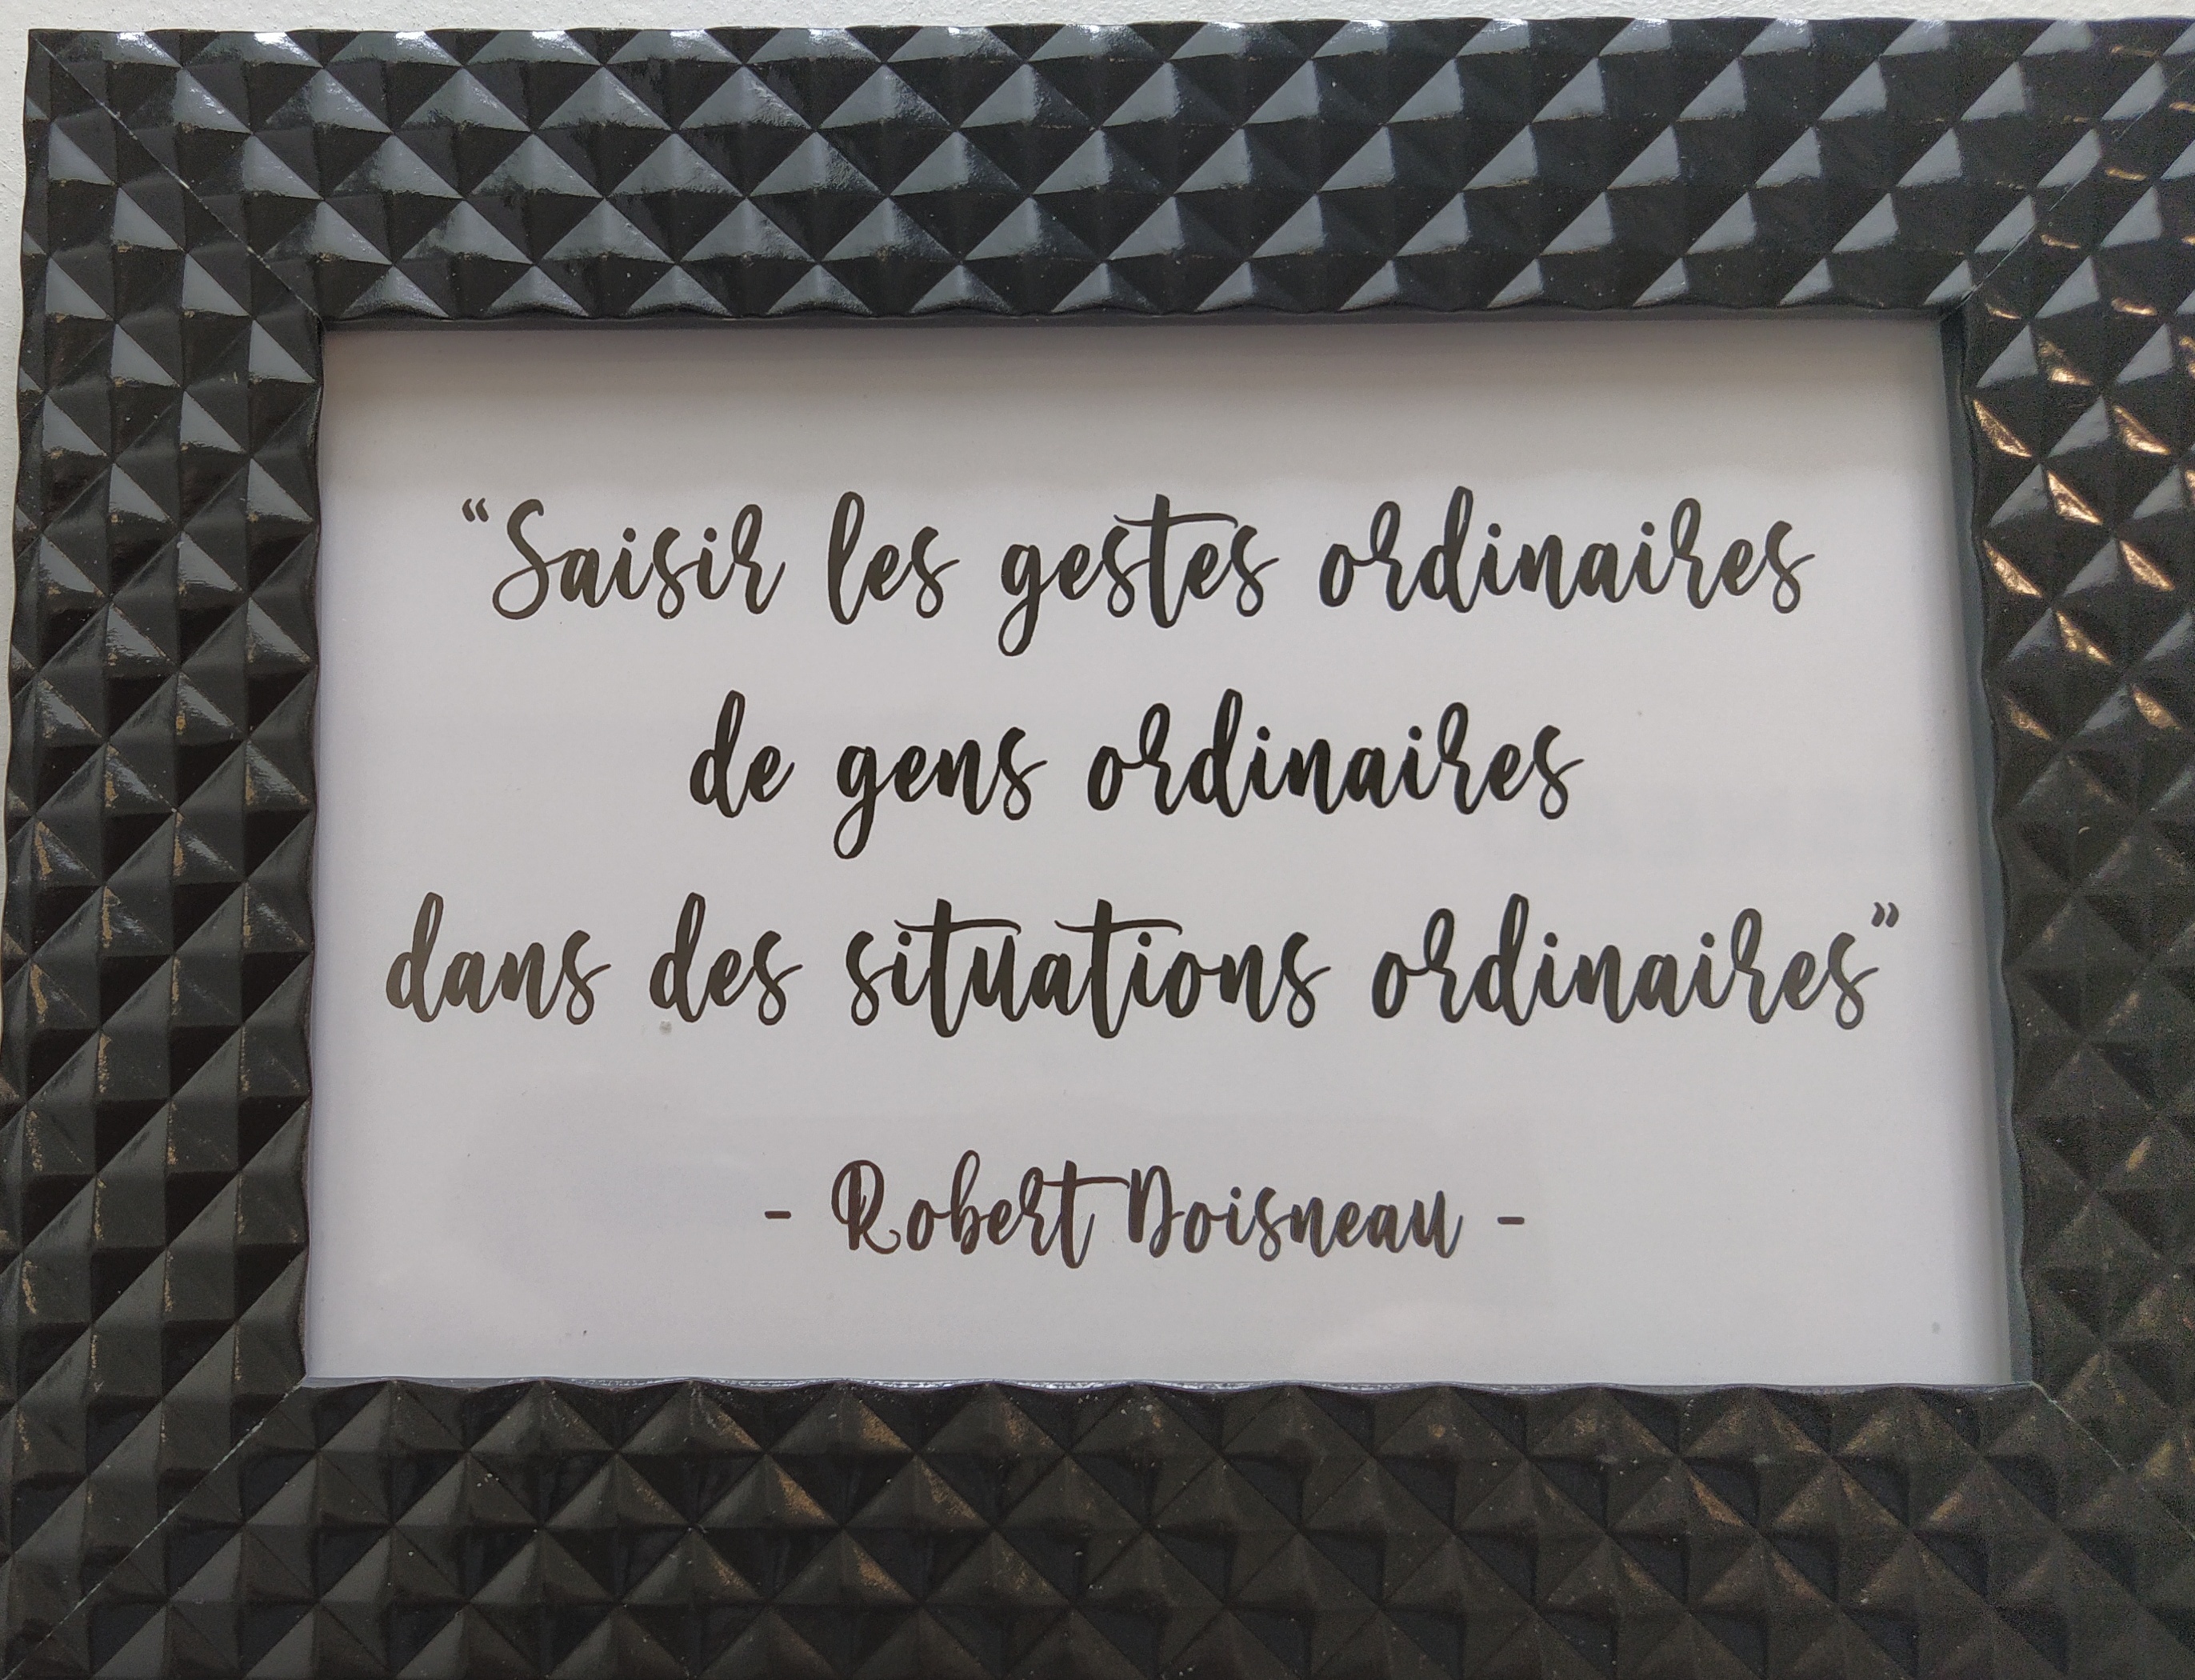 “Saisir les gestes ordinaires
de gens ordinaires
dans des situations ordinaires”
- Robert Doisneau -